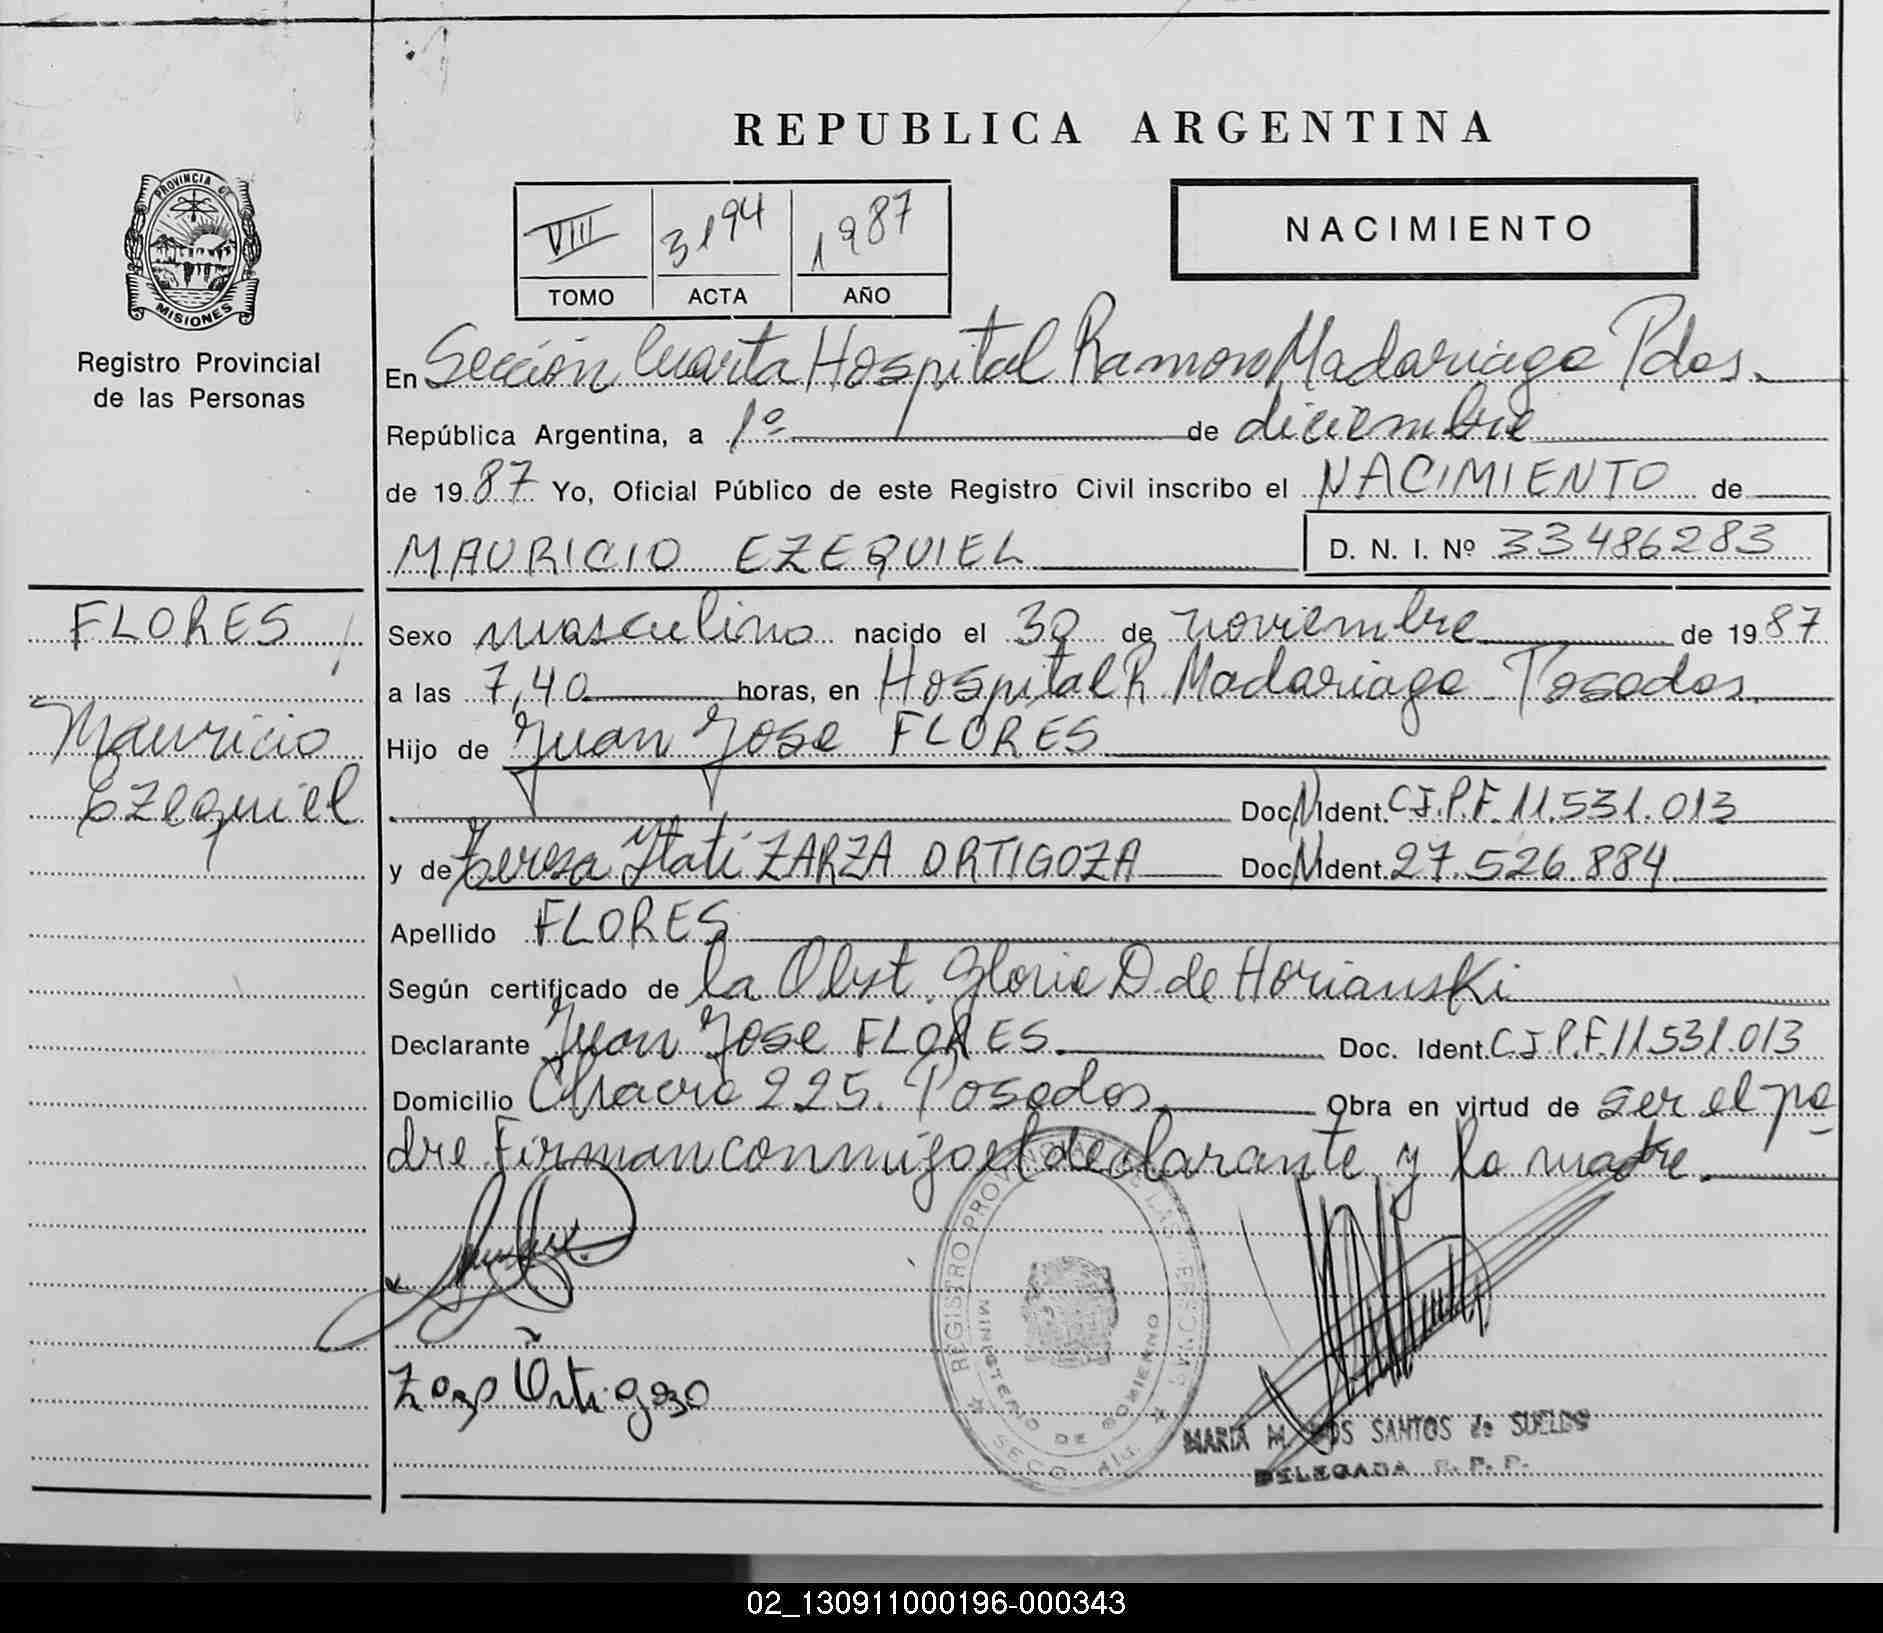 REPUBLICA ARGENTINA
PROVINCIA DE
MISIONES
Registro Provincial
de las Personas
VIII 3194 1987
TOMO ACTA AÑO
NACIMIENTO
En Sección Cuarta Hospital Ramon Madariaga Pdas.
República Argentina, a 1º de diciembre
de 1987 Yo, Oficial Público de este Registro Civil inscribo el NACIMIENTO de
MAURICIO EZEQUIEL D. N. I. Nº 33486283
FLORES
Mauricio
Ezequiel
Sexo masculino nacido el 30 de noviembre de 1987
a las 7,40 horas, en Hospital R Madariaga Posadas.
Hijo de Juan Jose FLORES
Doc. Ident. C.I.P.F. 11.531.013
y de Teresa Itati ZARZA ORTIGOZA Doc. Ident. 27.526.884
Apellido FLORES
Según certificado de la Obst. Gloria D de Horianski
Declarante Juan Jose FLORES Doc. Ident. C.I.P.F. 11.531.013
Domicilio Chacra 225. Posadas Obra en virtud de ser el pa
dre. Firman conmigo el declarante y la madre.
REGISTRO PROVINCIAL DE LAS PERSONAS
MINISTERIO DE GOBIERNO
Ortigozo
MARIA M. DOS SANTOS de SUELDO
DELEGADA R. P. P.
02_130911000196-000343